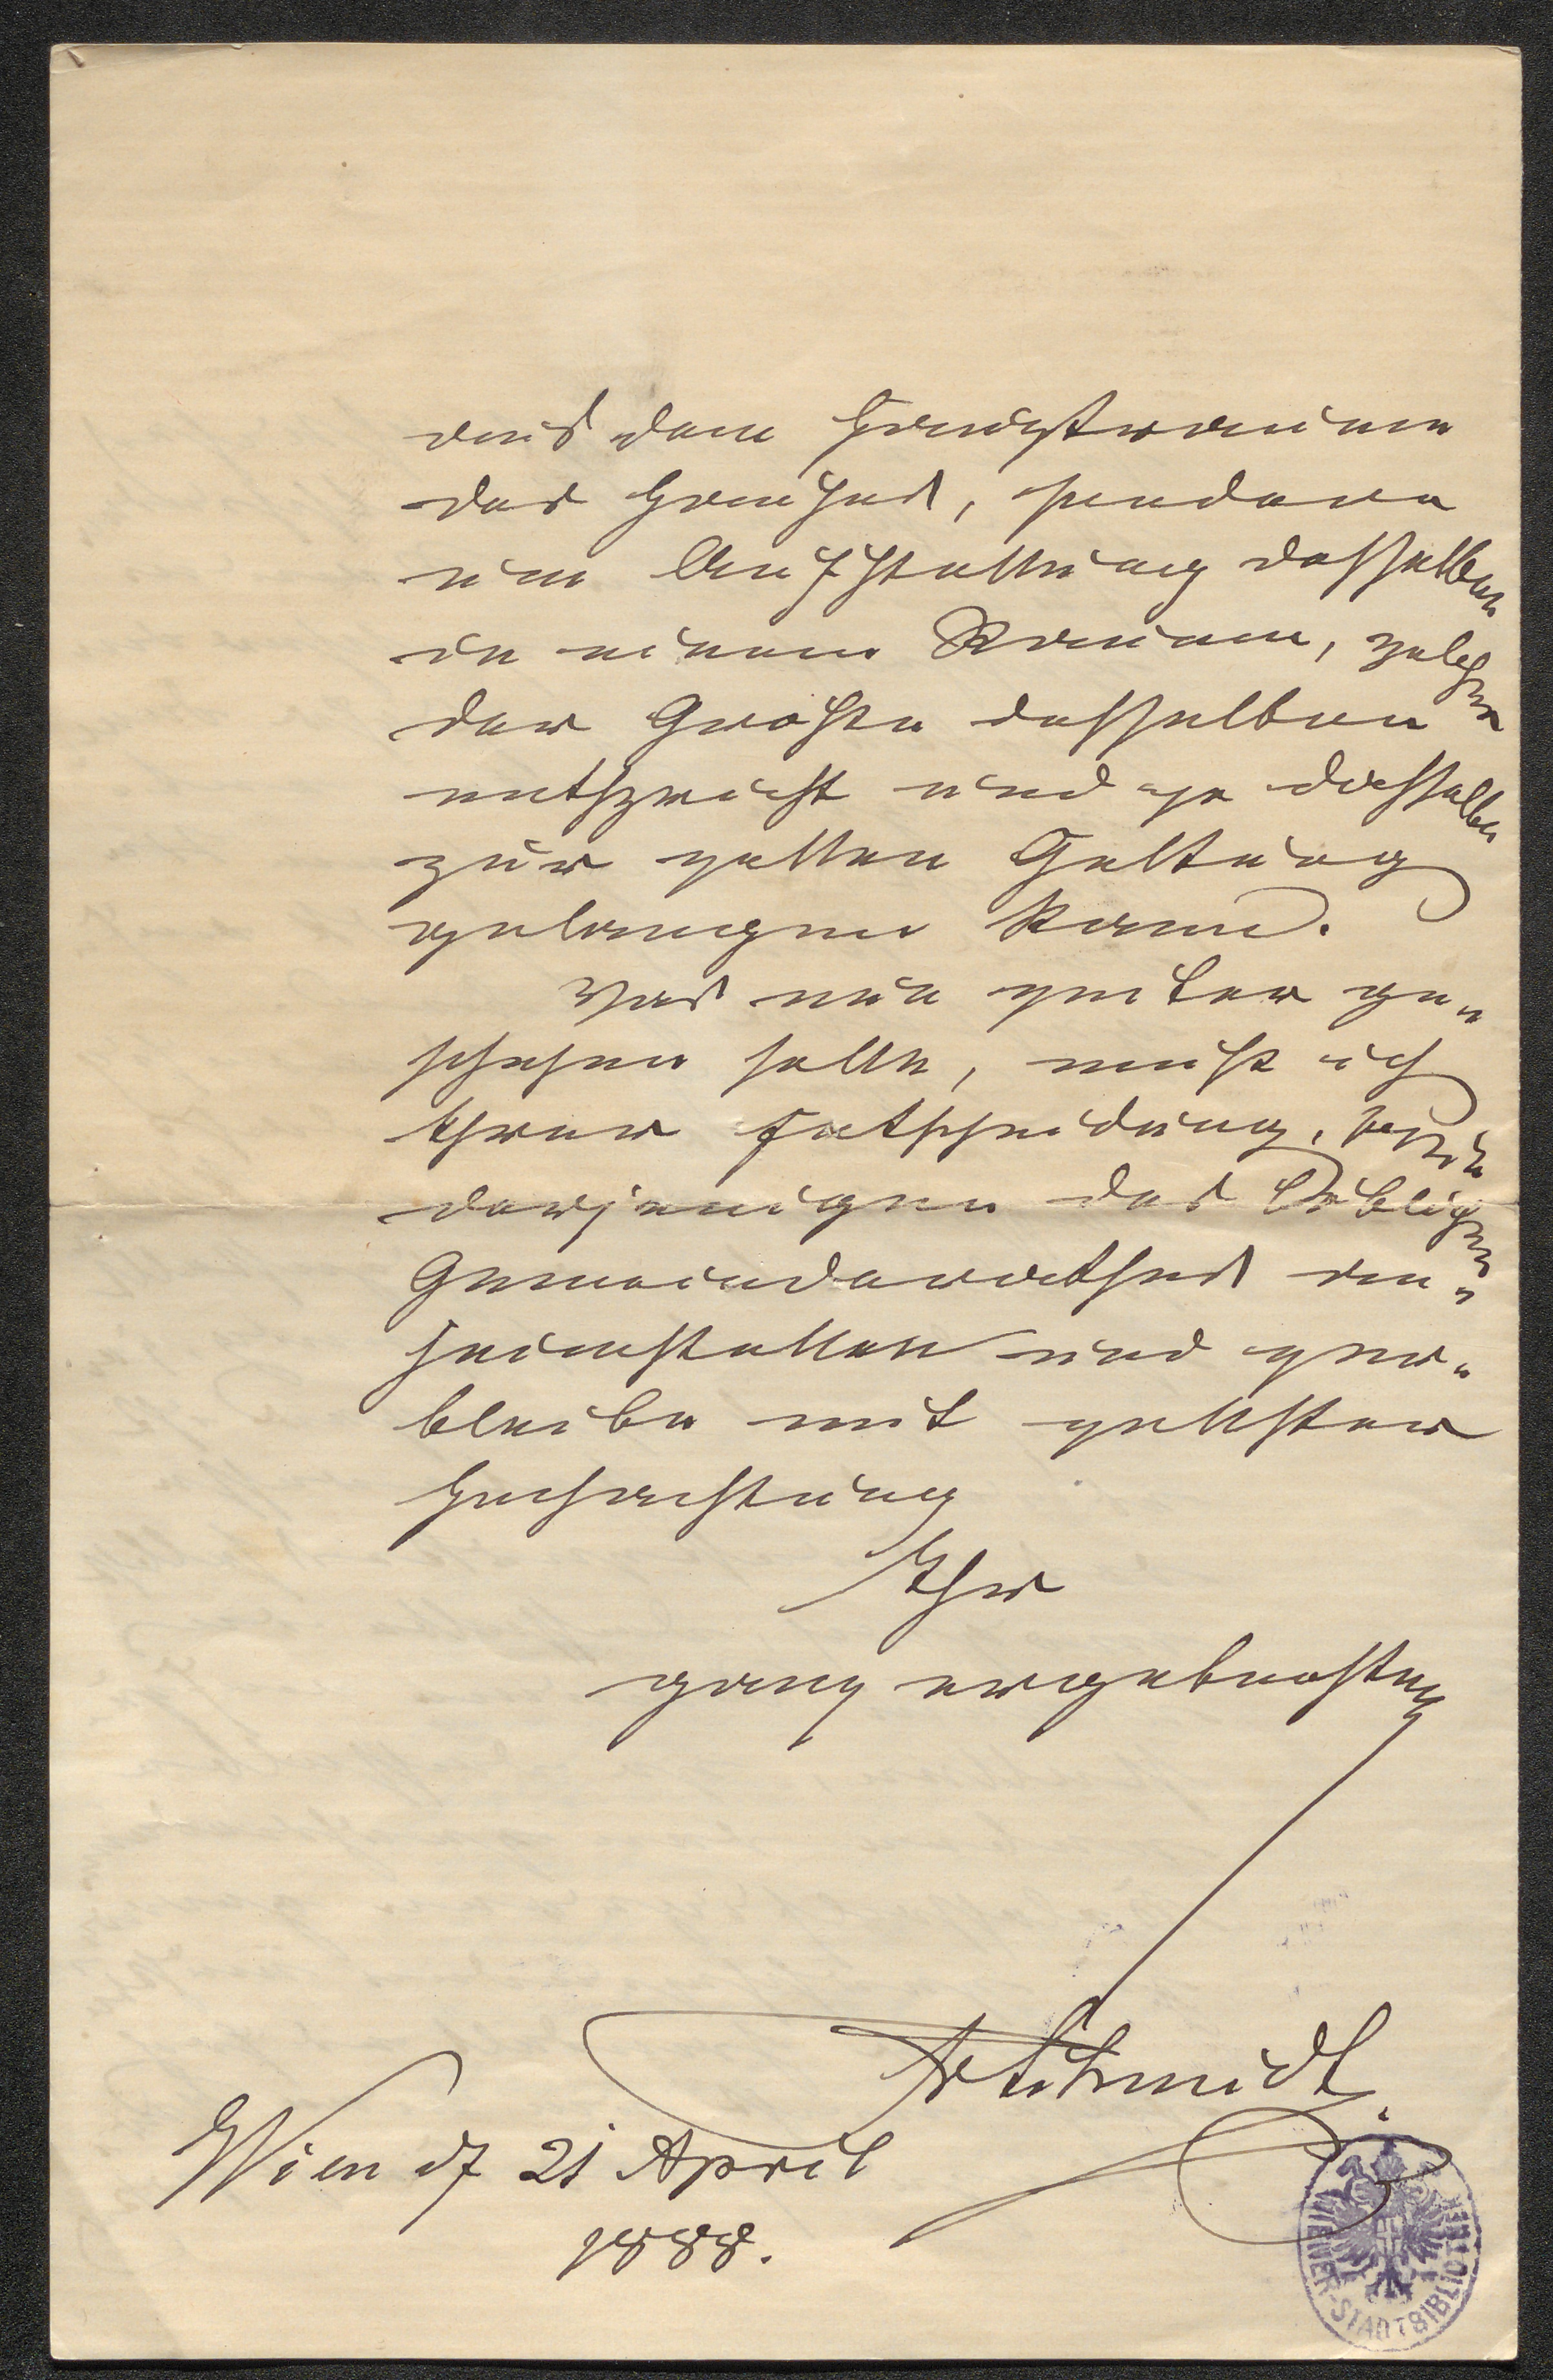 aus dem Hauptraume
des Hauses, sondern
um Aufstellung desselben
in einem Raume, welcher
der Größe desselben
entspricht und wo dasselbe
zur vollen Geltung
gelangen kann.
Was nun weiter ge„
schehen solle, muß ich
Ihrer Entscheidung, sowie
derjenigen des löblichen
Gemeinderathes an„
heimstellen und ver„
bleibe mit vollster
Hochachtung
Ihr
ganz ergebenster
Fr Schmidt
Wien d 21 April
1888.
WIENER-STADTBIBLIOTHEK